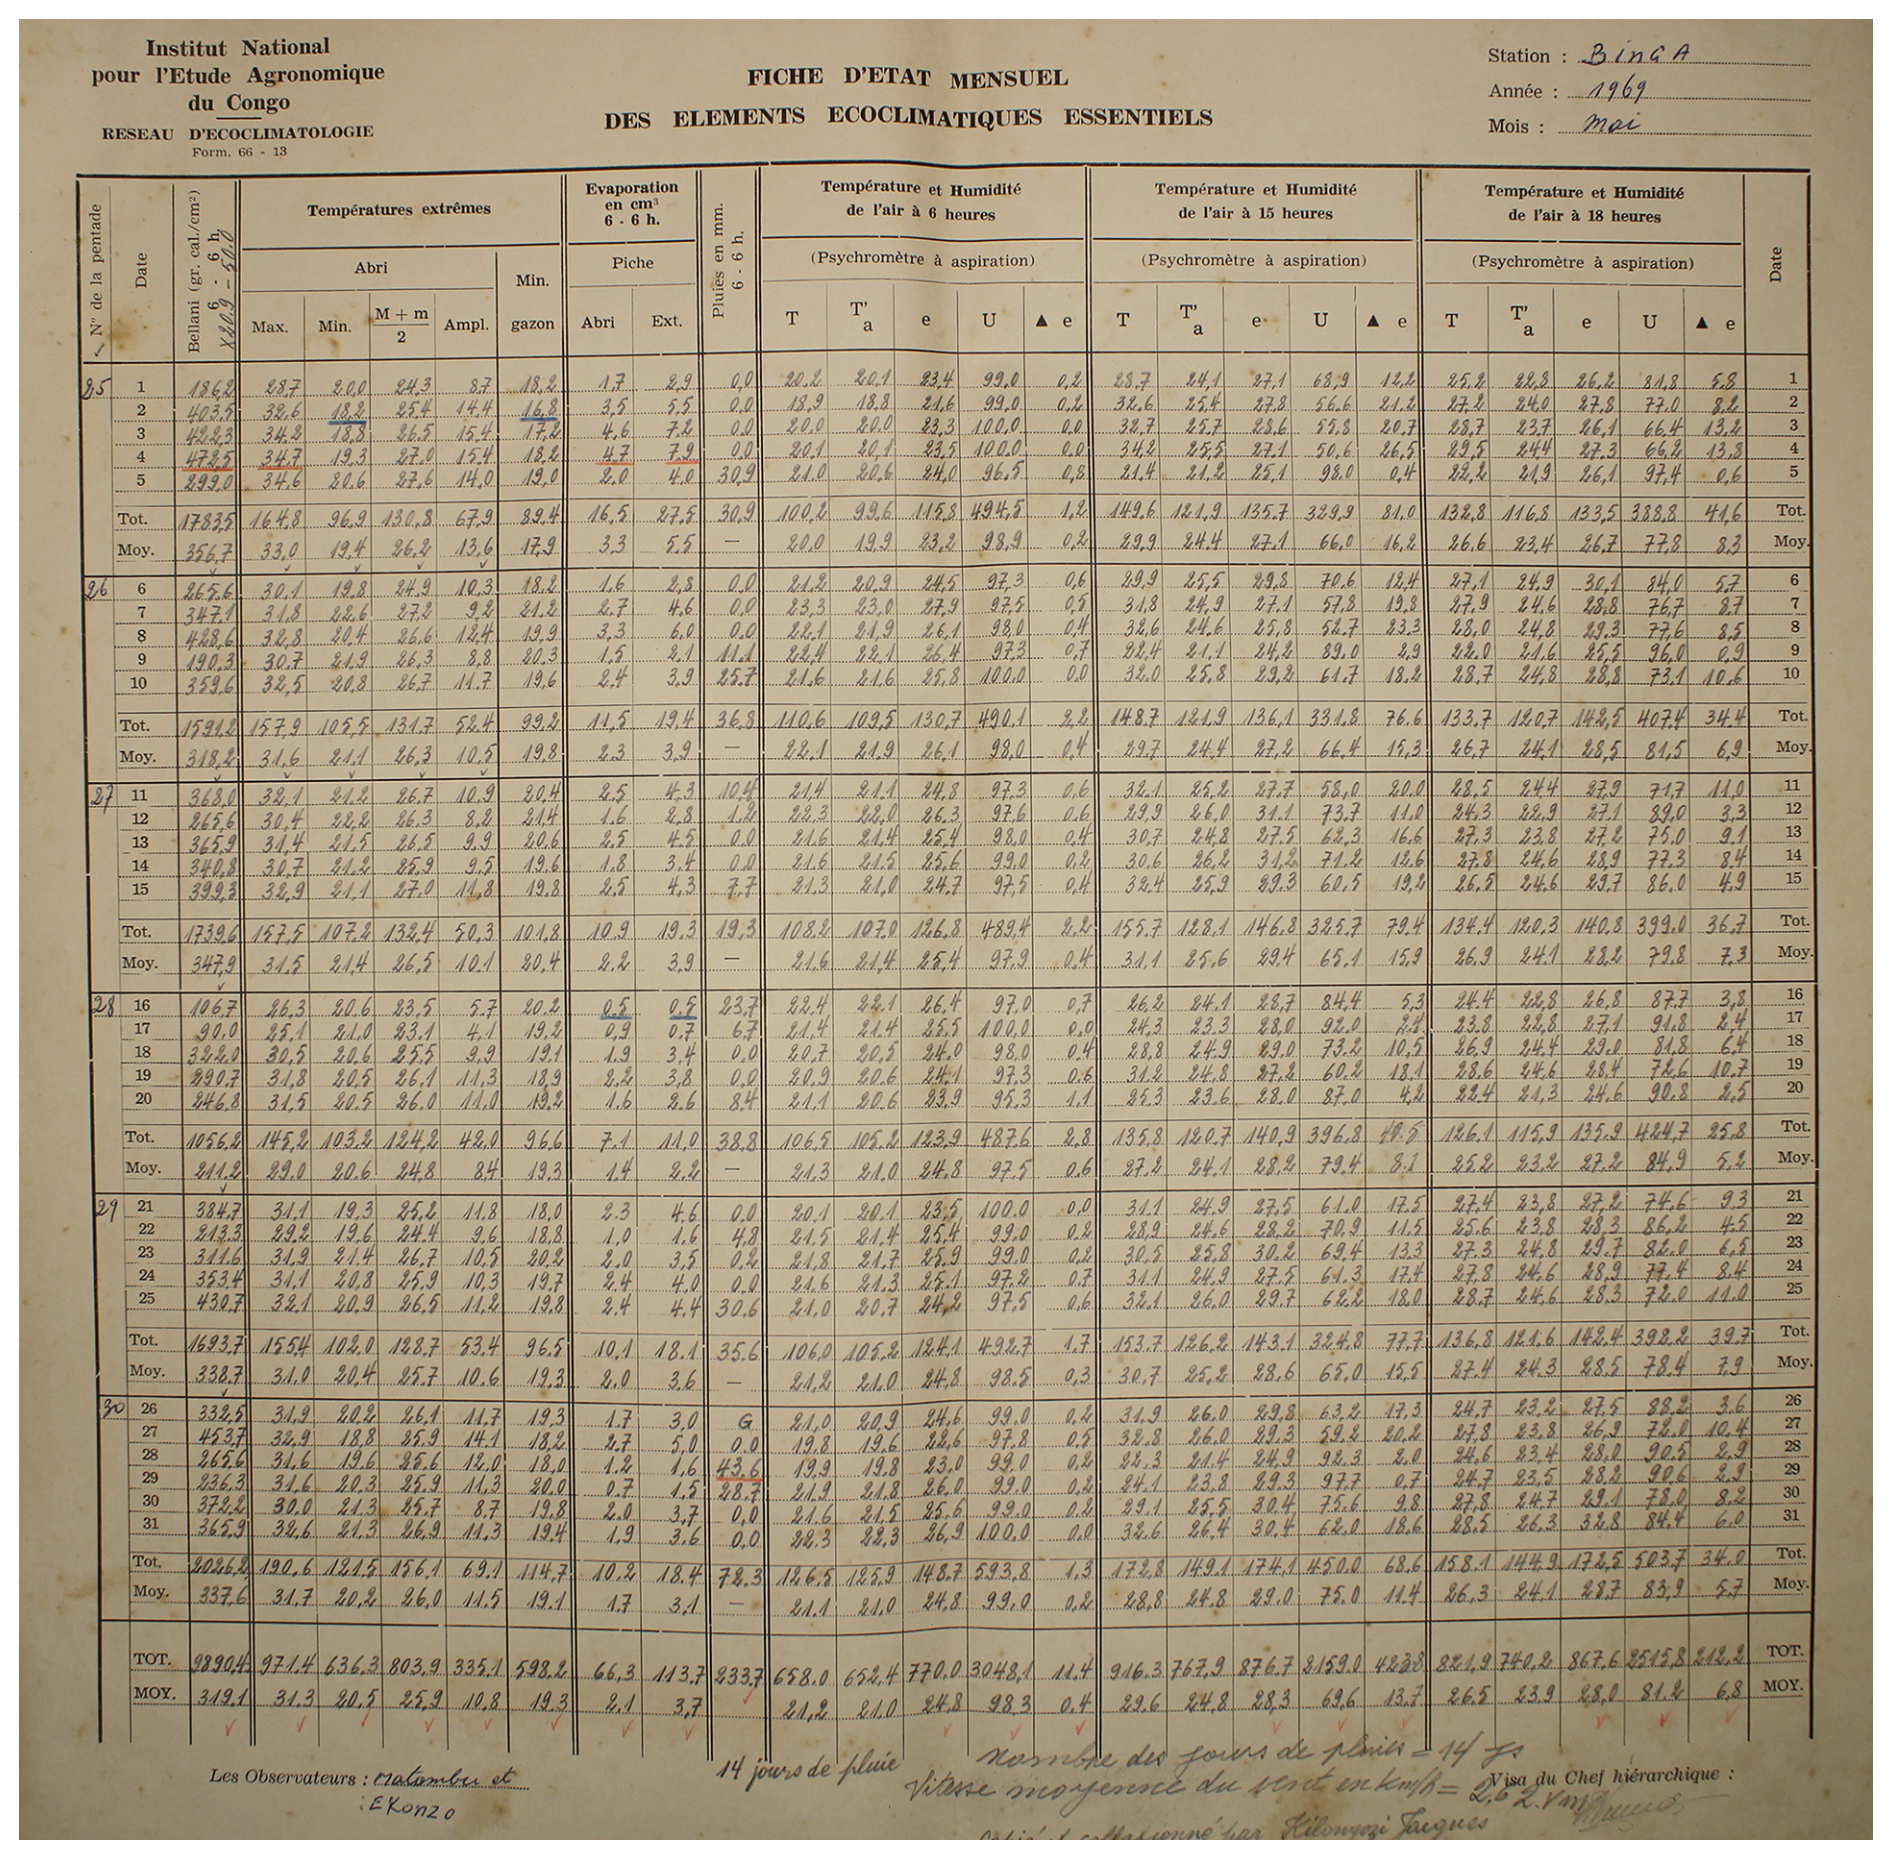 Institut National
pour l'Etude Agronomique
du Congo
RESEAU D'ECOCLIMATOLOGIE
Form. 66 - 13
FICHE D'ETAT MENSUEL
DES ELEMENTS ECOCLIMATIQUES ESSENTIELS
Station : BINGA
Année : 1969
Mois : Mai
N° de la pentade Date Bellani (gr. cal./cm²) 6 - 6 h. Températures extrêmes Evaporation en cm³ 6 - 6 h. Pluies en mm. 6 - 6 h. Température et Humidité de l'air à 6 heures Température et Humidité de l'air à 15 heures Température et Humidité de l'air à 18 heures Date
Abri Min. gazon Piche (Psychromètre à aspiration) (Psychromètre à aspiration) (Psychromètre à aspiration)
Max. Min. M + m / 2 Ampl. Abri Ext. T T'a e U ▲ e T T'a e U ▲ e T T'a e U ▲ e
25 1 186,2 28,7 20,0 24,3 8,7 18,2 1,7 2,9 0,0 20,2 20,1 23,4 99,0 0,2 28,7 24,1 27,1 68,9 12,2 25,2 22,8 26,2 81,8 5,8 1
2 403,5 32,6 18,2 25,4 14,4 16,8 3,5 5,5 0,0 18,9 18,8 21,6 99,0 0,2 32,6 25,4 27,8 56,6 21,2 27,2 24,0 27,8 77,0 8,2 2
3 422,3 34,2 18,8 26,5 15,4 17,2 4,6 7,2 0,0 20,0 20,0 23,3 100,0 0,0 32,7 25,7 28,6 55,8 20,7 28,7 23,7 26,1 66,4 13,2 3
4 472,5 34,7 19,3 27,0 15,4 18,2 4,7 7,9 0,0 20,1 20,1 23,5 100,0 0,0 34,2 25,5 27,1 50,6 26,5 29,5 24,4 27,3 66,2 13,8 4
5 299,0 34,6 20,6 27,6 14,0 19,0 2,0 4,0 30,9 21,0 20,6 24,0 96,5 0,8 21,4 21,2 25,1 98,0 0,4 22,2 21,9 26,1 97,4 0,6 5
Tot. 1783,5 164,8 96,9 130,8 67,9 89,4 16,5 27,5 30,9 100,2 99,6 115,8 494,5 1,2 149,6 121,9 135,7 329,9 81,0 132,8 116,8 133,5 388,8 41,6 Tot.
Moy. 356,7 33,0 19,4 26,2 13,6 17,9 3,3 5,5 — 20,0 19,9 23,2 98,9 0,2 29,9 24,4 27,1 66,0 16,2 26,6 23,4 26,7 77,8 8,3 Moy.
26 6 265,6 30,1 19,8 24,9 10,3 18,2 1,6 2,8 0,0 21,2 20,9 24,5 97,3 0,6 29,9 25,5 29,8 70,6 12,4 27,1 24,9 30,1 84,0 5,7 6
7 347,1 31,8 22,6 27,2 9,2 21,2 2,7 4,6 0,0 23,3 23,0 27,9 97,5 0,5 31,8 24,9 27,1 57,8 19,8 27,9 24,6 28,8 76,7 8,7 7
8 428,6 32,8 20,4 26,6 12,4 19,9 3,3 6,0 0,0 22,1 21,9 26,1 98,0 0,4 32,6 24,6 25,8 52,7 23,3 28,0 24,8 29,3 77,6 8,5 8
9 190,3 30,7 21,9 26,3 8,8 20,3 1,5 2,1 11,1 22,4 22,1 26,4 97,3 0,7 22,4 21,1 24,2 89,0 2,9 22,0 21,6 25,5 96,0 0,9 9
10 359,6 32,5 20,8 26,7 11,7 19,6 2,4 3,9 25,7 21,6 21,6 25,8 100,0 0,0 32,0 25,8 29,2 61,7 18,2 28,7 24,8 28,8 73,1 10,6 10
Tot. 1591,2 157,9 105,5 131,7 52,4 99,2 11,5 19,4 36,8 110,6 109,5 130,7 490,1 2,2 148,7 121,9 136,1 331,8 76,6 133,7 120,7 142,5 407,4 34,4 Tot.
Moy. 318,2 31,6 21,1 26,3 10,5 19,8 2,3 3,9 — 22,1 21,9 26,1 98,0 0,4 29,7 24,4 27,2 66,4 15,3 26,7 24,1 28,5 81,5 6,9 Moy.
27 11 368,0 32,1 21,2 26,7 10,9 20,4 2,5 4,3 10,4 21,4 21,1 24,8 97,3 0,6 32,1 25,2 27,7 58,0 20,0 28,5 24,4 27,9 71,7 11,0 11
12 265,6 30,4 22,2 26,3 8,2 21,4 1,6 2,8 1,2 22,3 22,0 26,3 97,6 0,6 29,9 26,0 31,1 73,7 11,0 24,3 22,9 27,1 89,0 3,3 12
13 365,9 31,4 21,5 26,5 9,9 20,6 2,5 4,5 0,0 21,6 21,4 25,4 98,0 0,4 30,7 24,8 27,5 62,3 16,6 27,3 23,8 27,2 75,0 9,1 13
14 340,8 30,7 21,2 25,9 9,5 19,6 1,8 3,4 0,0 21,6 21,5 25,6 99,0 0,2 30,6 26,2 31,2 71,2 12,6 27,8 24,6 28,9 77,3 8,4 14
15 399,3 32,9 21,1 27,0 11,8 19,8 2,5 4,3 7,7 21,3 21,0 24,7 97,5 0,4 32,4 25,9 29,3 60,5 19,2 26,5 24,6 29,7 86,0 4,9 15
Tot. 1739,6 157,5 107,2 132,4 50,3 101,8 10,9 19,3 19,3 108,2 107,0 126,8 489,4 2,2 155,7 128,1 146,8 325,7 79,4 134,4 120,3 140,8 399,0 36,7 Tot.
Moy. 347,9 31,5 21,4 26,5 10,1 20,4 2,2 3,9 — 21,6 21,4 25,4 97,9 0,4 31,1 25,6 29,4 65,1 15,9 26,9 24,1 28,2 79,8 7,3 Moy.
28 16 106,7 26,3 20,6 23,5 5,7 20,2 0,5 0,5 23,7 22,4 22,1 26,4 97,0 0,7 26,2 24,1 28,7 84,4 5,3 24,4 22,8 26,8 87,7 3,8 16
17 90,0 25,1 21,0 23,1 4,1 19,2 0,9 0,7 6,7 21,4 21,4 25,5 100,0 0,0 24,3 23,3 28,0 92,0 2,4 23,8 22,8 27,1 91,8 2,4 17
18 322,0 30,5 20,6 25,5 9,9 19,1 1,9 3,4 0,0 20,7 20,5 24,0 98,0 0,4 28,8 24,9 29,0 73,2 10,5 26,9 24,4 29,0 81,8 6,4 18
19 290,7 31,8 20,5 26,1 11,3 18,9 2,2 3,8 0,0 20,9 20,6 24,1 97,3 0,6 31,2 24,8 27,2 60,2 18,1 28,6 24,6 28,4 72,6 10,7 19
20 246,8 31,5 20,5 26,0 11,0 19,2 1,6 2,6 8,4 21,1 20,6 23,9 95,3 1,1 25,3 23,6 28,0 87,0 4,2 22,4 21,3 24,6 90,8 2,5 20
Tot. 1056,2 145,2 103,2 124,2 42,0 96,6 7,1 11,0 38,8 106,5 105,2 123,9 487,6 2,8 135,8 120,7 140,9 396,8 40,5 126,1 115,9 135,9 424,7 25,8 Tot.
Moy. 211,2 29,0 20,6 24,8 8,4 19,3 1,4 2,2 — 21,3 21,0 24,8 97,5 0,6 27,2 24,1 28,2 79,4 8,1 25,2 23,2 27,2 84,9 5,2 Moy.
29 21 384,7 31,1 19,3 25,2 11,8 18,0 2,3 4,6 0,0 20,1 20,1 23,5 100,0 0,0 31,1 24,9 27,5 61,0 17,5 27,4 23,8 27,2 74,6 9,3 21
22 213,3 29,2 19,6 24,4 9,6 18,8 1,0 1,6 4,8 21,5 21,4 25,4 99,0 0,2 28,9 24,6 28,2 70,9 11,5 25,6 23,8 28,3 86,2 4,5 22
23 311,6 31,9 21,4 26,7 10,5 20,2 2,0 3,5 0,2 21,8 21,7 25,9 99,0 0,2 30,5 25,8 30,2 69,4 13,3 27,3 24,8 29,7 82,0 6,5 23
24 353,4 31,1 20,8 25,9 10,3 19,7 2,4 4,0 0,0 21,6 21,3 25,1 97,2 0,7 31,1 24,9 27,5 61,3 17,4 27,8 24,6 28,9 77,4 8,4 24
25 430,7 32,1 20,9 26,5 11,2 19,8 2,4 4,4 30,6 21,0 20,7 24,2 97,5 0,6 32,1 26,0 29,7 62,2 18,0 28,7 24,6 28,3 72,0 11,0 25
Tot. 1693,7 155,4 102,0 128,7 53,4 96,5 10,1 18,1 35,6 106,0 105,2 124,1 492,7 1,7 153,7 126,2 143,1 324,8 77,7 136,8 121,6 142,4 392,2 39,7 Tot.
Moy. 338,7 31,0 20,4 25,7 10,6 19,3 2,0 3,6 — 21,2 21,0 24,8 98,5 0,3 30,7 25,2 28,6 65,0 15,5 27,4 24,3 28,5 78,4 7,9 Moy.
30 26 332,5 31,9 20,2 26,1 11,7 19,3 1,7 3,0 G 21,0 20,9 24,6 99,0 0,2 31,9 26,0 29,8 63,2 17,3 24,7 23,2 27,5 88,2 3,6 26
27 453,7 32,9 18,8 25,9 14,1 18,2 2,7 5,0 0,0 19,8 19,6 22,6 97,8 0,5 32,8 26,0 29,3 59,2 20,2 27,8 23,8 26,9 72,0 10,4 27
28 265,6 31,6 19,6 25,6 12,0 18,0 1,2 1,6 43,6 19,9 19,8 23,0 99,0 0,2 22,3 21,4 24,9 92,3 2,0 24,6 23,4 28,0 90,5 2,9 28
29 236,3 31,6 20,3 25,9 11,3 20,0 0,7 1,5 28,7 21,9 21,8 26,0 99,0 0,2 24,1 23,8 29,3 97,7 0,7 24,7 23,5 28,2 90,6 2,9 29
30 372,2 30,0 21,3 25,7 8,7 19,8 2,0 3,7 0,0 21,6 21,5 25,6 99,0 0,2 29,1 25,5 30,4 75,6 9,8 27,8 24,7 29,1 78,0 8,2 30
31 365,9 32,6 21,3 26,9 11,3 19,4 1,9 3,6 0,0 22,3 22,3 26,9 100,0 0,0 32,6 26,4 30,4 62,0 18,6 28,5 26,3 32,8 84,4 6,0 31
Tot. 2026,2 190,6 121,5 156,1 69,1 114,7 10,2 18,4 72,3 126,5 125,9 148,7 593,8 1,3 172,8 149,1 174,1 450,0 68,6 158,1 144,9 172,5 503,7 34,0 Tot.
Moy. 337,6 31,7 20,2 26,0 11,5 19,1 1,7 3,1 — 21,1 21,0 24,8 99,0 0,2 28,8 24,8 29,0 75,0 11,4 26,3 24,1 28,7 83,9 5,7 Moy.
TOT. 9890,4 971,4 636,3 803,9 335,1 598,2 66,3 113,7 233,7 658,0 652,4 770,0 3048,1 11,4 916,3 767,9 876,7 2159,0 423,8 821,9 740,2 867,6 2515,8 212,2 TOT.
MOY. 319,1 31,3 20,5 25,9 10,8 19,3 2,1 3,7 21,2 21,0 24,8 98,3 0,4 29,6 24,8 28,3 69,6 13,7 26,5 23,9 28,0 81,2 6,8 MOY.
14 jours de pluie
Nombre des jours de pluies = 14 js
Vitesse moyenne du vent en km/h = 2,6
Les Observateurs : Matambu et
: EKONZO
Visa du Chef hiérarchique :
collationné par Kilongozi Jacques